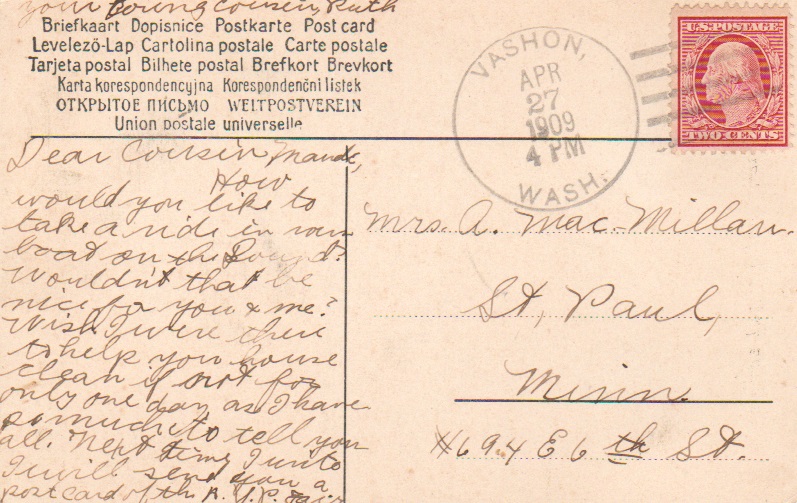 your young cousin, Ruth
Briefkaart Dopisnice Postkarte Post card
Levelező-Lap Cartolina postale Carte postale
Tarjeta postal Bilhete postal Brefkort Brevkort
Karta korespondencyjna Korespondenčni listek
ОТКРЫТОЕ ПИСЬМО WELTPOSTVEREIN
Union postale universelle
VASHON,
APR
27
1909
4 PM
WASH.
U.S. POSTAGE
TWO CENTS
Dear Cousin Maude,
How
would you like to
take a ride in
boat on the Sound?
Wouldn't that be
nice for you & me?
Wish I were there
to help you house
clean if not for
only one day as I have
so much to tell you
all. Next time I
I will send you a
post card of the A. Y. P. Fair
Mrs. A. Mac-Millan.
St, Paul,
Minn.
#694 E 6th St.